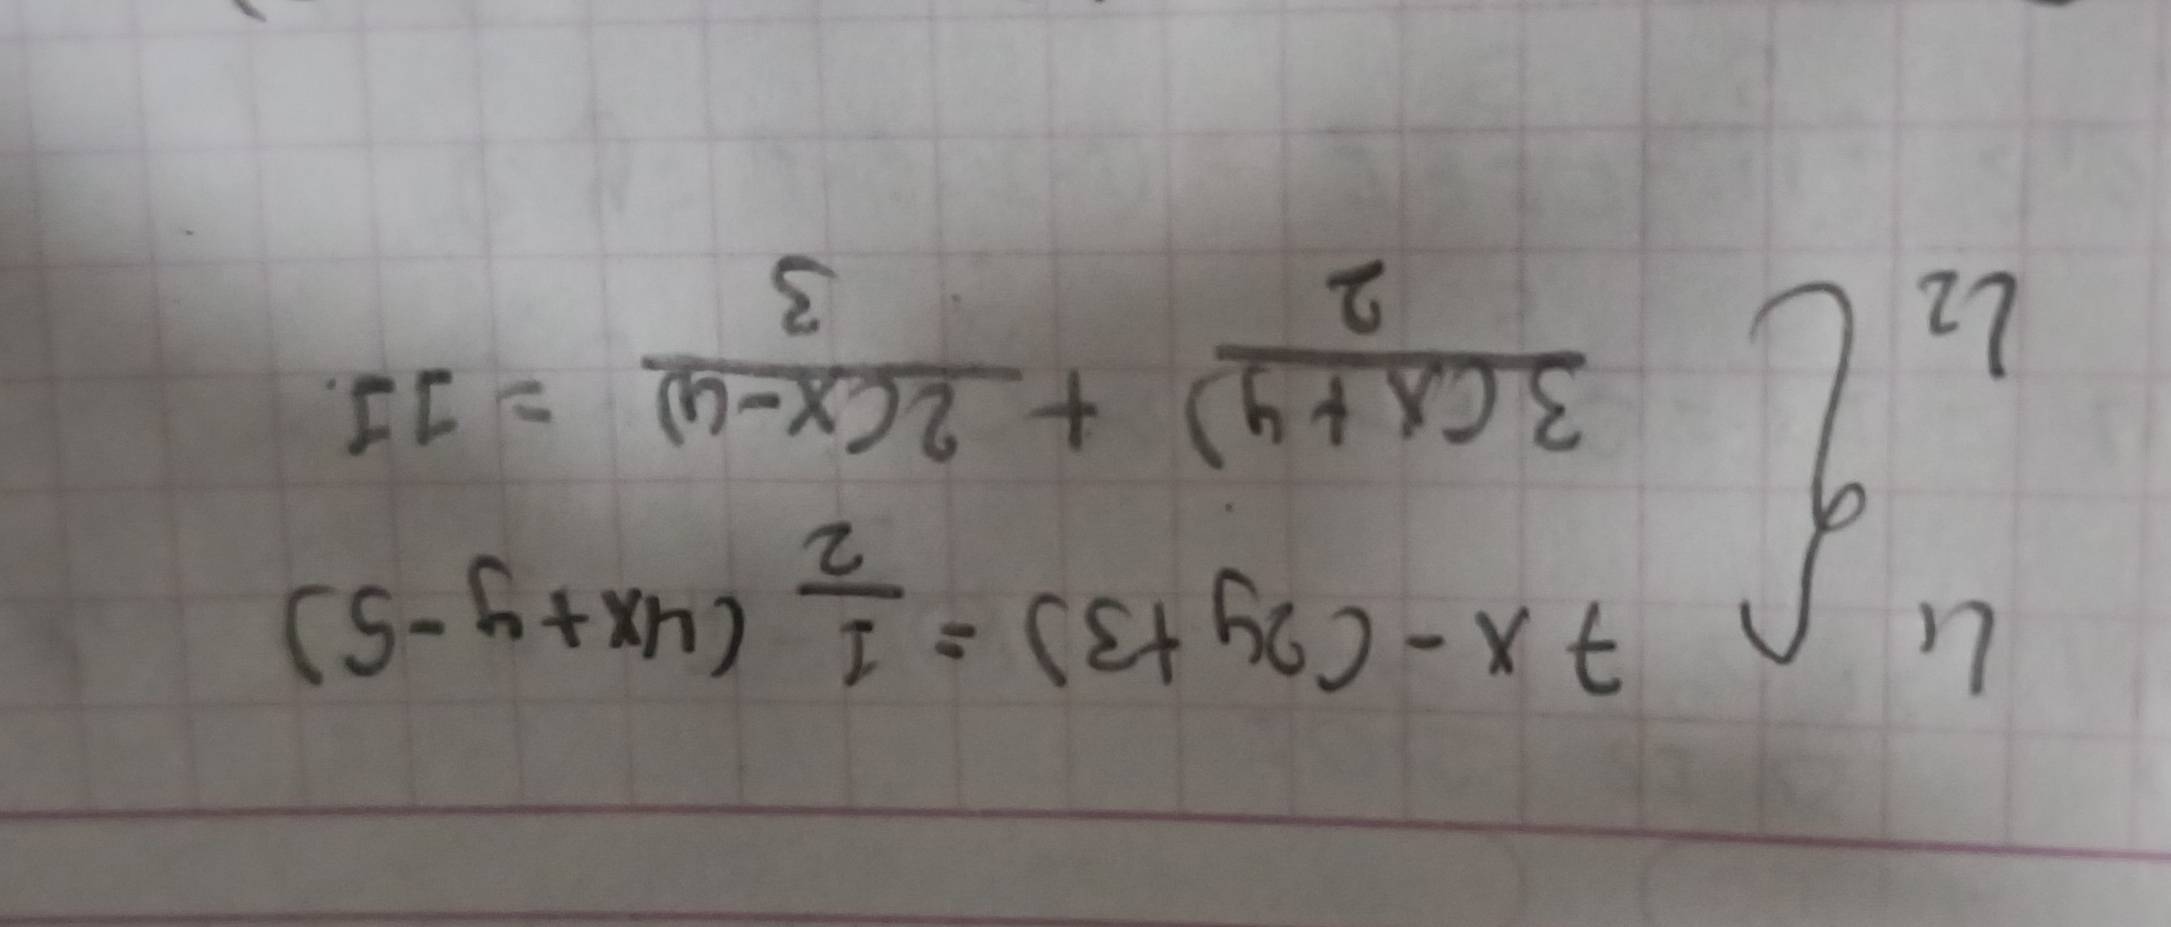 L1 { 7x - (2y+3) = 1/2 (4x+y-5)
L2 { 3(x+y)/2 + 2(x-y)/3 = 11.